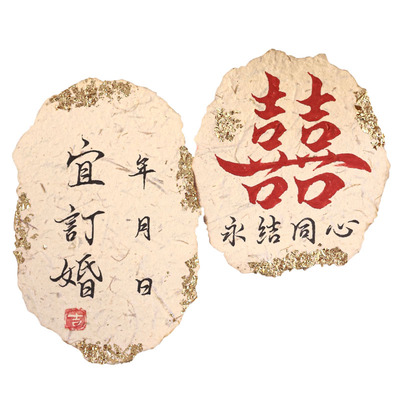 年月日
宜訂婚
吉
囍
永结同心